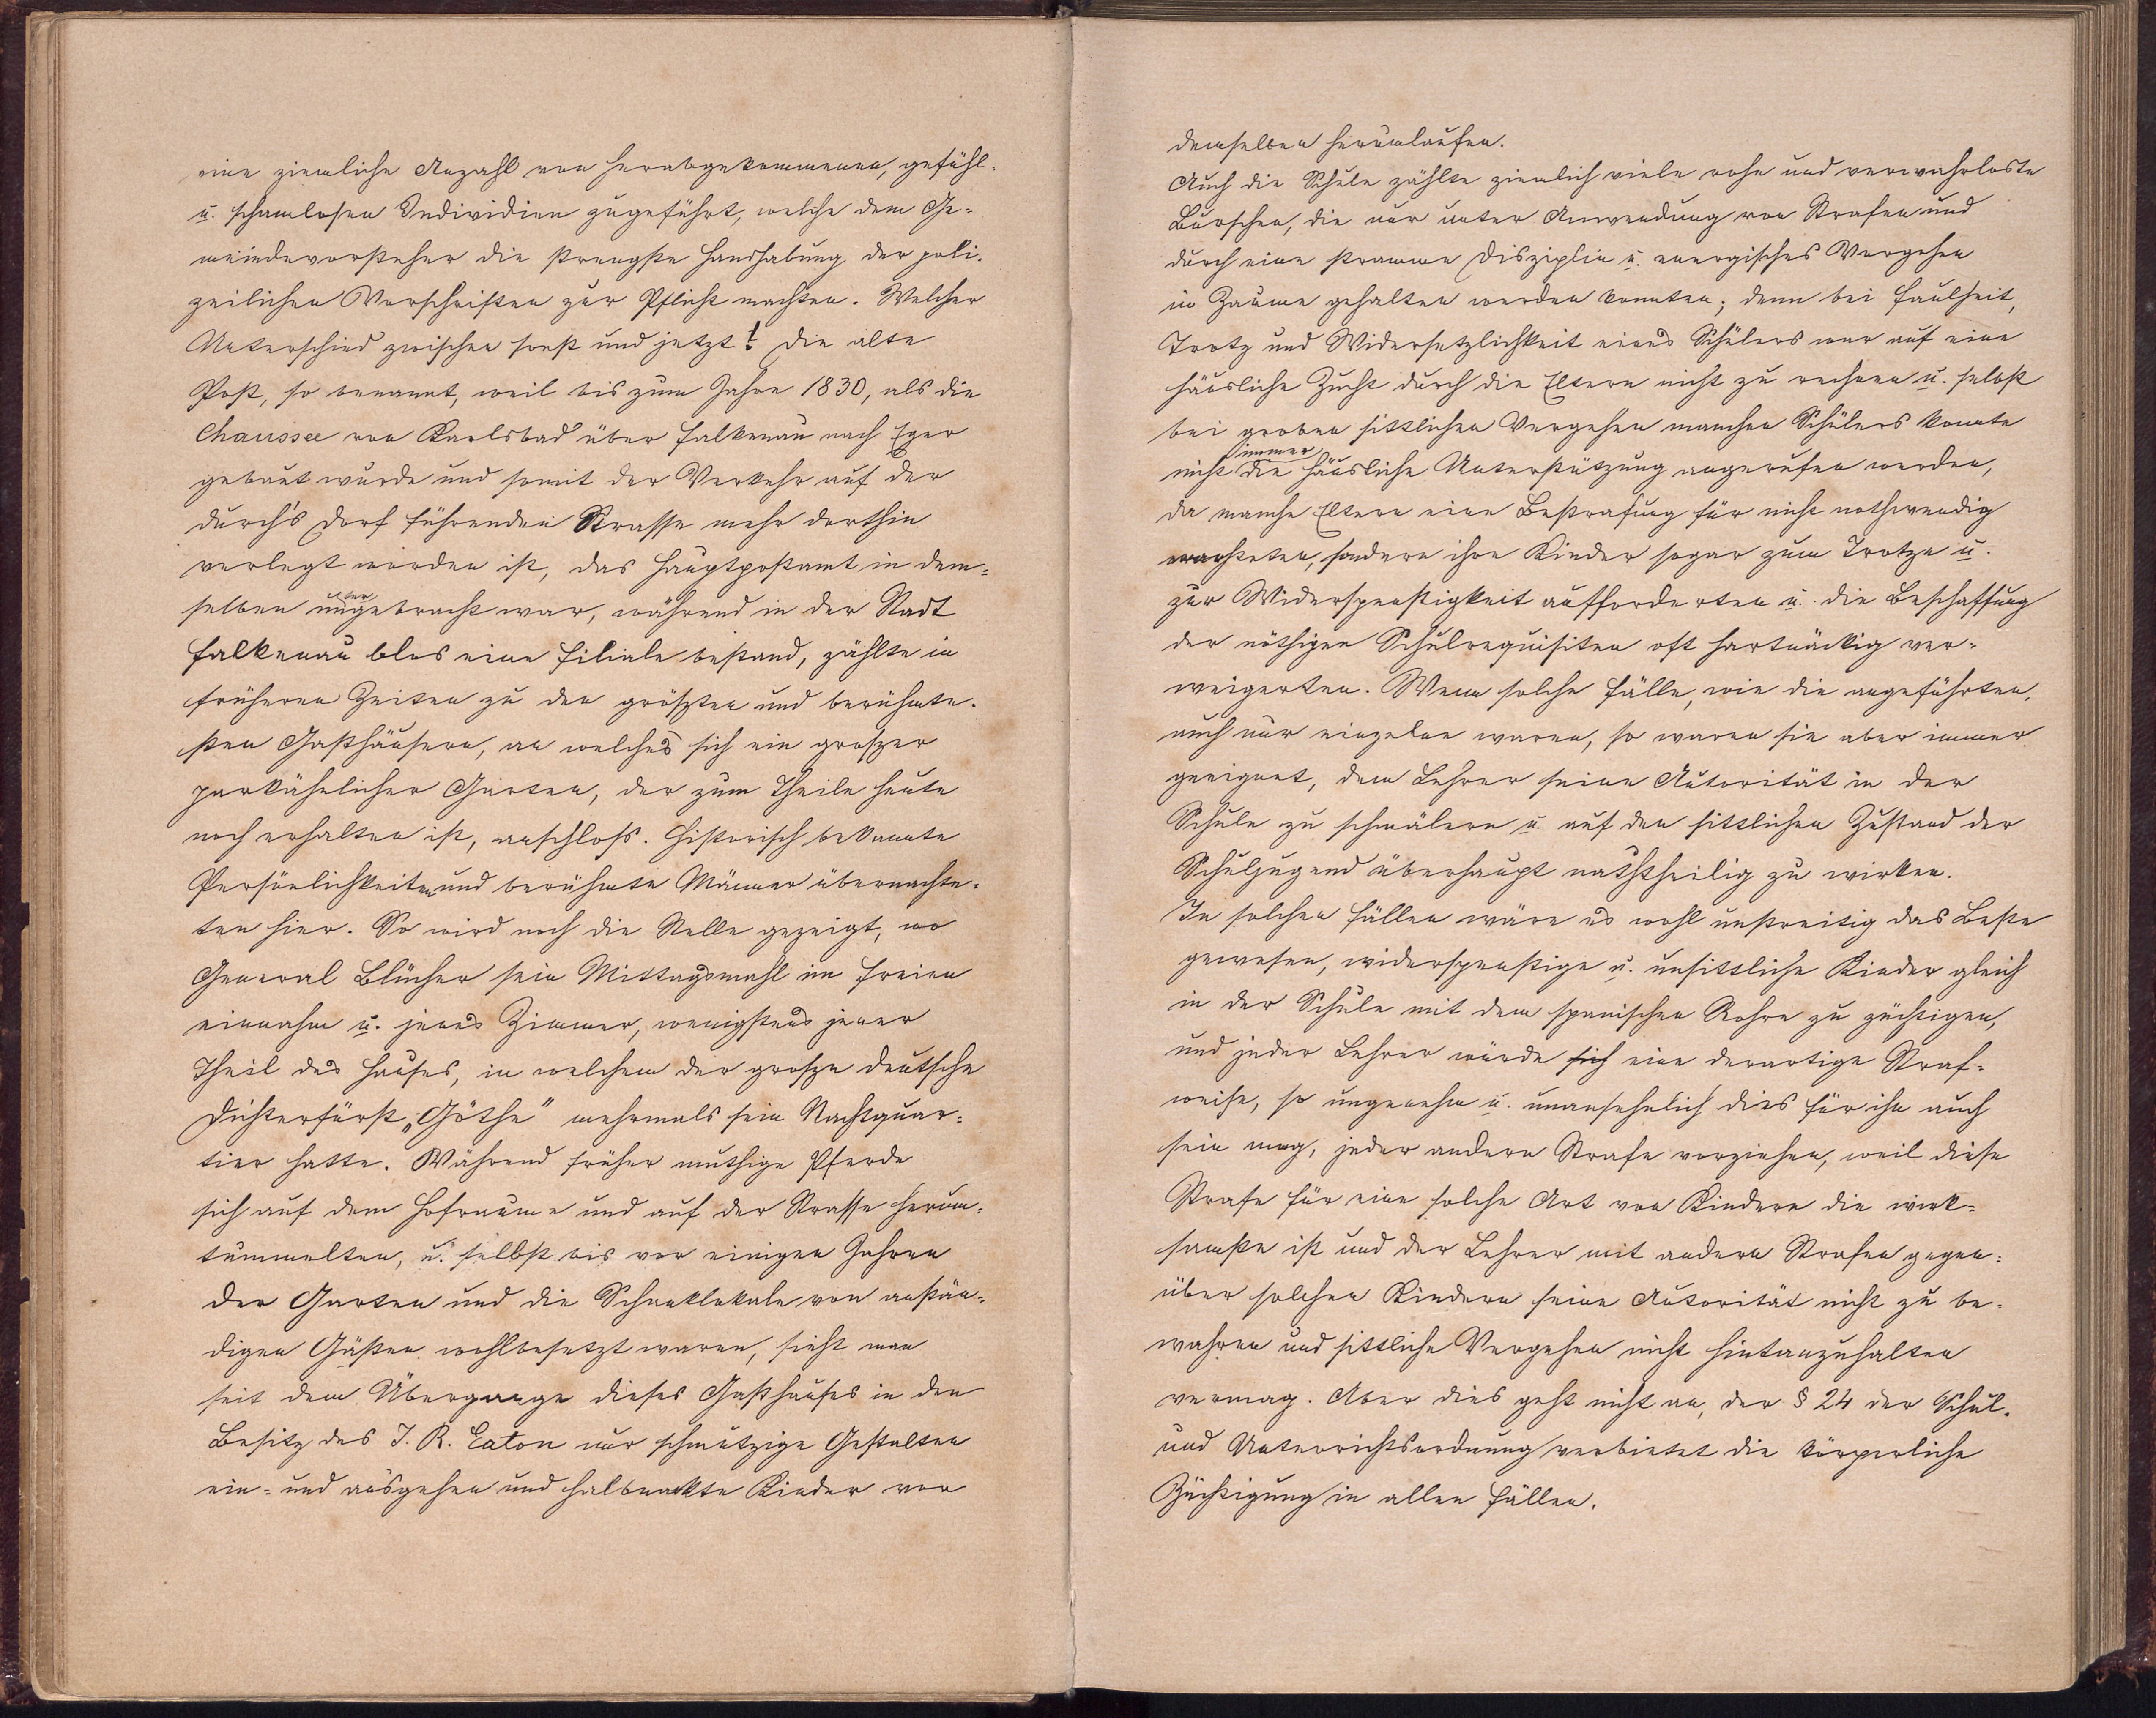 eine ziemliche Anzahl von herabgekommenen, gefühl-
u. schamlosen Individien zugeführt, welche dem Ge-
meindevorsteher die strengste Handhabung der poli-
zeilichen Vorschriften zur Pflicht machten. Welcher
Unterschied zwischen sonst und jetzt! Die alte
Post, so benannt, weil bis zum Jahre 1830, als die
Chaussee von Karlsbad über Falkenau nach Eger
gebaut wurde und somit der Verkehr auf der
durch's Dorf führenden Strasse mehr dorthin
verlegt worden ist, das Hauptpostamt in dem-
selben untergebracht war, während in der Stadt
Falkenau blos eine Filiale bestand, zählte in
früheren Zeiten zu den größten und berühmte-
sten Gasthäusern, an welches sich ein groszer
parkähnlicher Garten, der zum Theile heute
noch erhalten ist, anschloss. Historisch bekannte
Persönlichkeiten und berühmte Männer übernachte-
ten hier. So wird noch die Stelle gezeigt, wo
General Blücher sein Mittagsmahl im Freien
einnahm u. jenes Zimmer, wenigstens jener
Theil des Hauses, in welchem der grosze deutsche
Dichterfürst „Göthe" mehrmals sein Nachtquar-
tier hatte. Während früher muthige Pferde
sich auf dem Hofraume und auf der Strasse herum-
tummelten, u. selbst bis vor einigen Jahren
der Garten und die Schanklokale von anstän-
digen Gästen wohlbesetzt waren, sieht man
seit dem Übergange dieses Gasthauses in den
Besitz des J. R. Eaton nur schmutzige Gestalten
ein- und ausgehen und halbnackte Kinder vor
demselben herumlaufen.
Auch die Schule zählte ziemlich viele rohe und verwahrloste
Burschen, die nur unter Anwendung von Strafen und
durch eine stramme Disziplin u. energisches Vorgehen
in Zaume gehalten werden konnten; denn bei Faulheit,
Trotz und Widersetzlichkeit eines Schülers war auf eine
häusliche Zucht durch die Eltern nicht zu rechnen u. selbst
bei groben sittlichen Vergehen manchen Schülers konnte
nicht immer die häusliche Unterstützung angerufen werden,
da manche Eltern eine Bestrafung für nicht nothwendig
erachteten, sondern ihre Kinder sogar zum Trotze u.
zur Widerspenstigkeit aufforderten u. die Beschaffung
der nöthigen Schulrequisiten oft hartnäckig ver-
weigerten. Wenn solche Fälle, wie die angeführten,
auch nur einzelne waren, so waren sie aber immer
geeignet, dem Lehrer seine Autorität in der
Schule zu schmälern u. auf den sittlichen Zustand der
Schuljugend überhaupt nachtheilig zu wirken.
In solchen Fällen wäre es wohl unstreitig das Beste
gewesen, widerspenstige u. unsittliche Kinder gleich
in der Schule mit dem spanischen Rohre zu züchtigen,
und jeder Lehrer würde sich eine derartige Straf-
weise, so ungenehm u. unansehnlich dies für ihn auch
sein mag, jeder andern Strafe vorziehen, weil diese
Strafe für eine solche Art von Kindern die wirk-
samste ist und der Lehrer mit andern Strafen gegen-
über solchen Kindern seine Autorität nicht zu be-
wahren und sittliche Vergehen nicht hintanzuhalten
vermag. Aber dies geht nicht an, der § 24 der Schul-
und Unterrichtsordnung verbietet die körperliche
Züchtigung in allen Fällen.